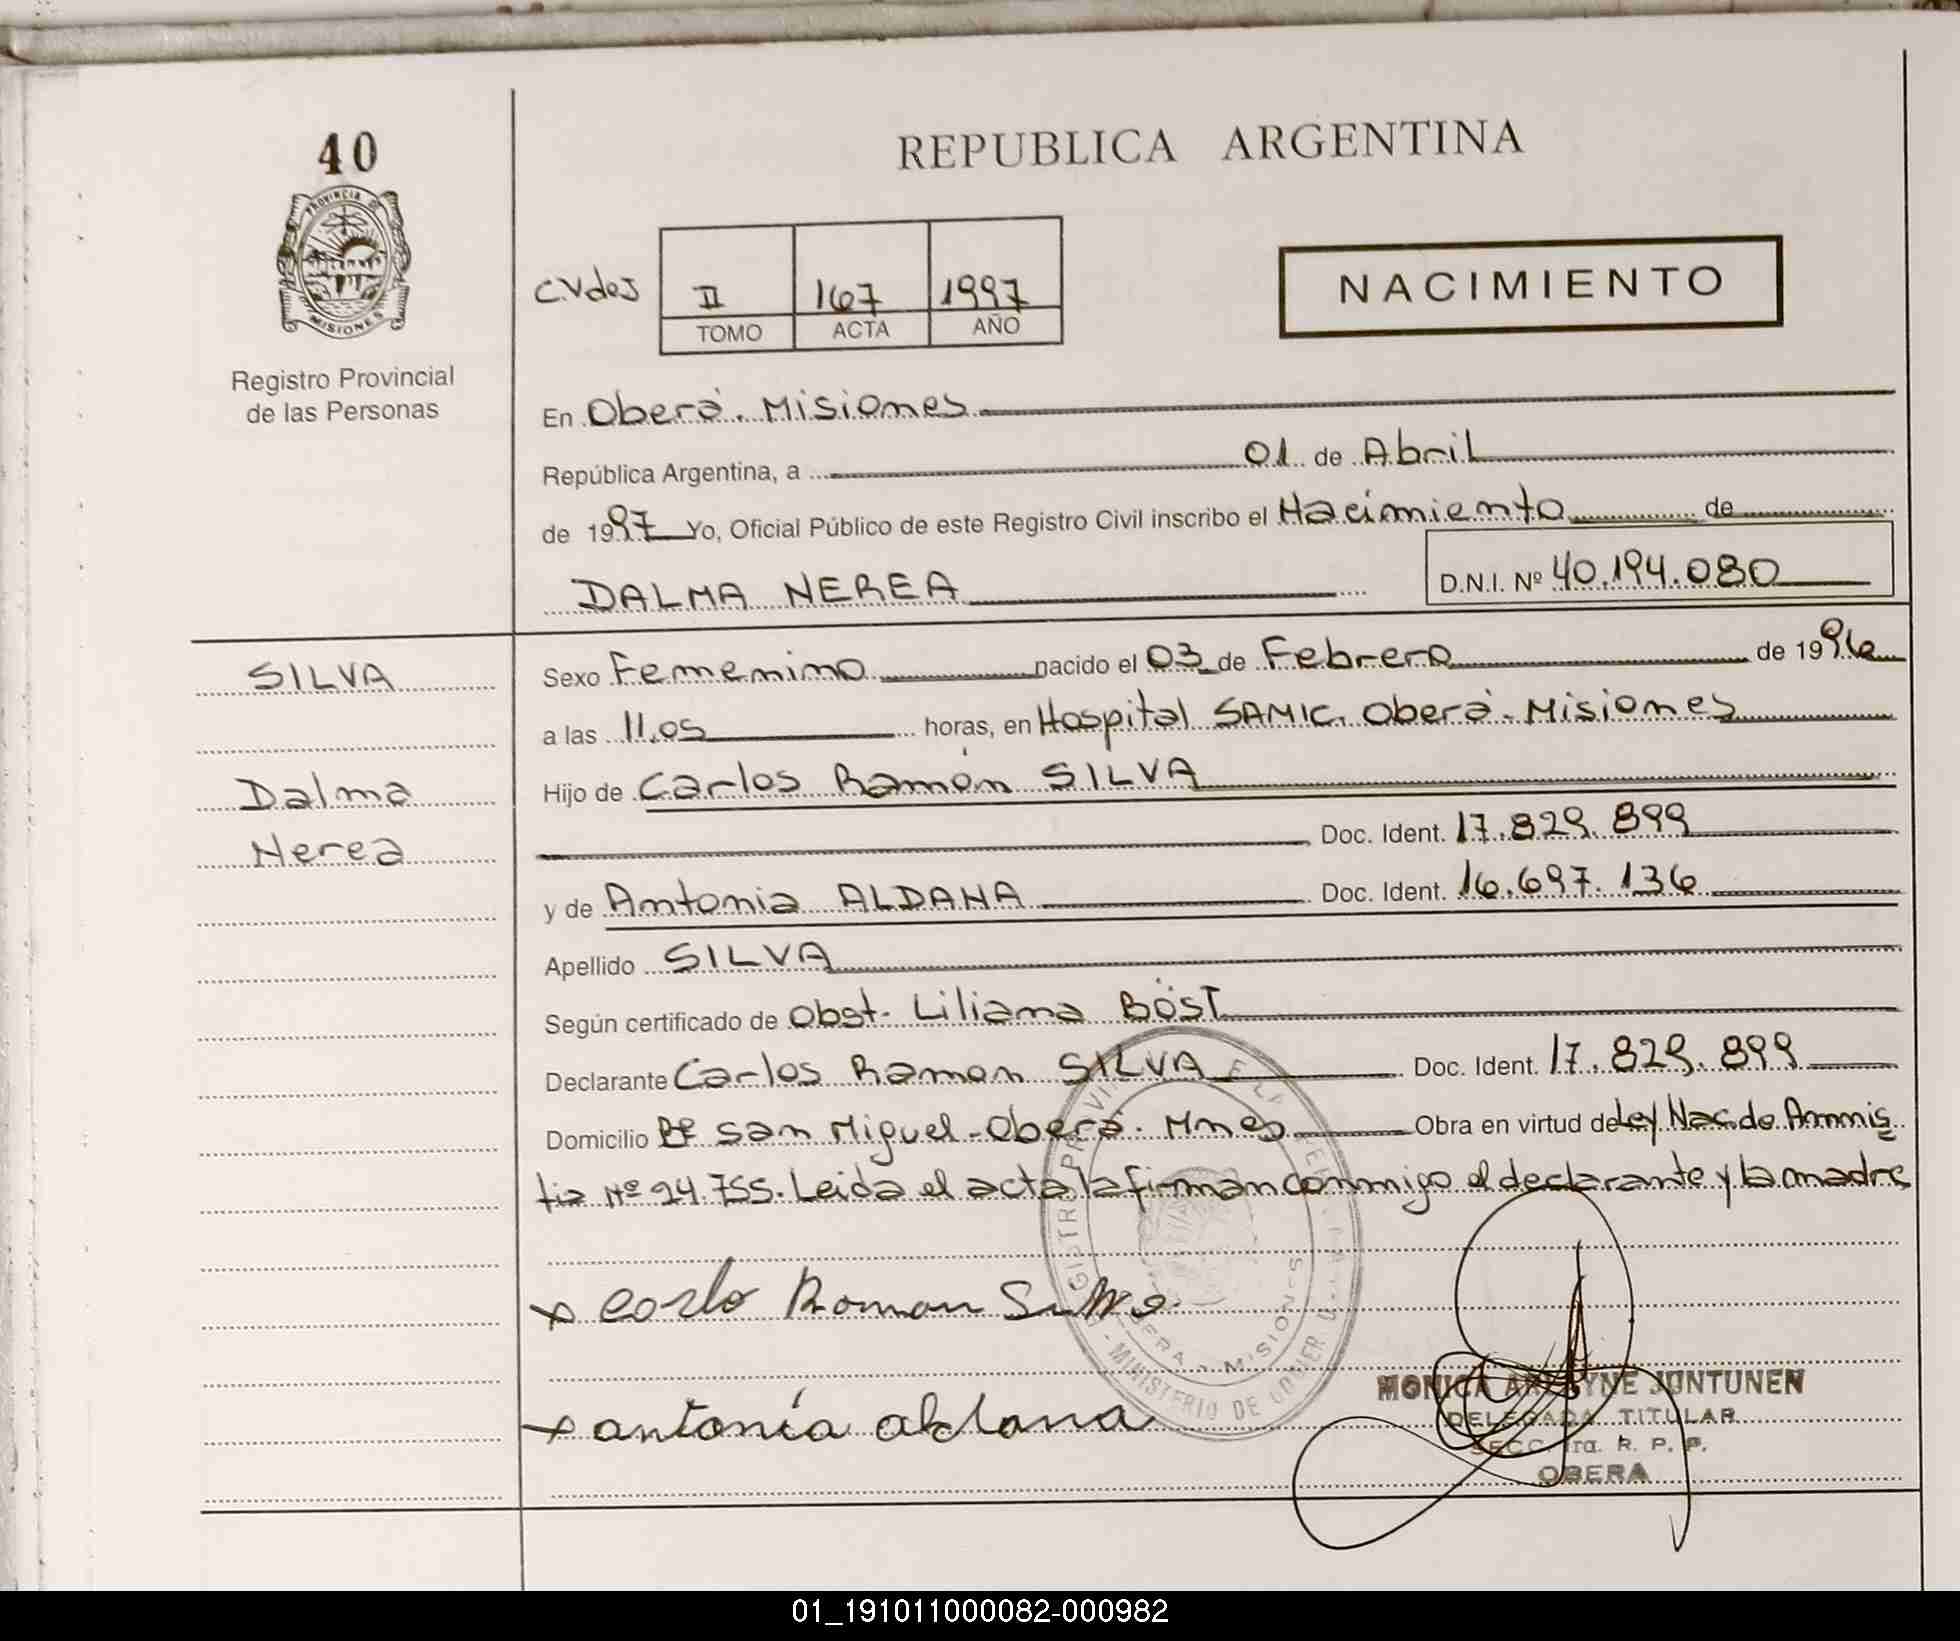 40
REPUBLICA ARGENTINA
PROVINCIA DE
MISIONES
Registro Provincial
de las Personas
C.Vdes II 167 1997
TOMO ACTA AÑO
NACIMIENTO
En Oberá. Misiones
República Argentina, a 01 de Abril
de 1997 Yo, Oficial Público de este Registro Civil inscribo el Nacimiento de
DALMA NEREA D.N.I. Nº 40.194.080
SILVA
Dalma
Nerea
Sexo Femenino nacido el 03 de Febrero de 1996
a las 11.05 horas, en Hospital SAMIC. Oberá - Misiones
Hijo de Carlos Ramón SILVA
Doc. Ident. 17.829.899
y de Antonia ALDANA Doc. Ident. 16.697.136
Apellido SILVA
Según certificado de Obst. Liliana BÖST
Declarante Carlos Ramon SILVA Doc. Ident. 17.829.899
Domicilio Bº San Miguel - Oberá. Mnes Obra en virtud de Ley Nac. de Amnis
tia Nº 24.755. Leida el acta la firman conmigo el declarante y la madre
x Carlo Roman Silva
x antonía aldana
MINISTERIO DE
MISIONES
MONICA JUNTUNEN
DELEGADA TITULAR
SECC. 1ra. R. P. P.
OBERA
01_191011000082-000982